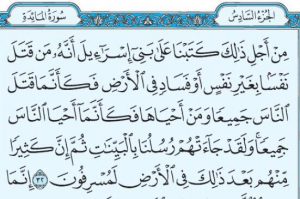 سُورَةُ المَائِدَةِ الجُزْءُ السَّادِسُ
مِنْ أَجْلِ ذَٰلِكَ كَتَبْنَا عَلَىٰ بَنِىٓ إِسْرَٰٓءِيلَ أَنَّهُۥ مَن قَتَلَ
نَفْسًۢا بِغَيْرِ نَفْسٍ أَوْ فَسَادٍ فِى ٱلْأَرْضِ فَكَأَنَّمَا قَتَلَ
ٱلنَّاسَ جَمِيعًا وَمَنْ أَحْيَاهَا فَكَأَنَّمَآ أَحْيَا ٱلنَّاسَ
جَمِيعًا ۚ وَلَقَدْ جَآءَتْهُمْ رُسُلُنَا بِٱلْبَيِّنَٰتِ ثُمَّ إِنَّ كَثِيرًا
مِّنْهُم بَعْدَ ذَٰلِكَ فِى ٱلْأَرْضِ لَمُسْرِفُونَ ٣٢ إِنَّمَا